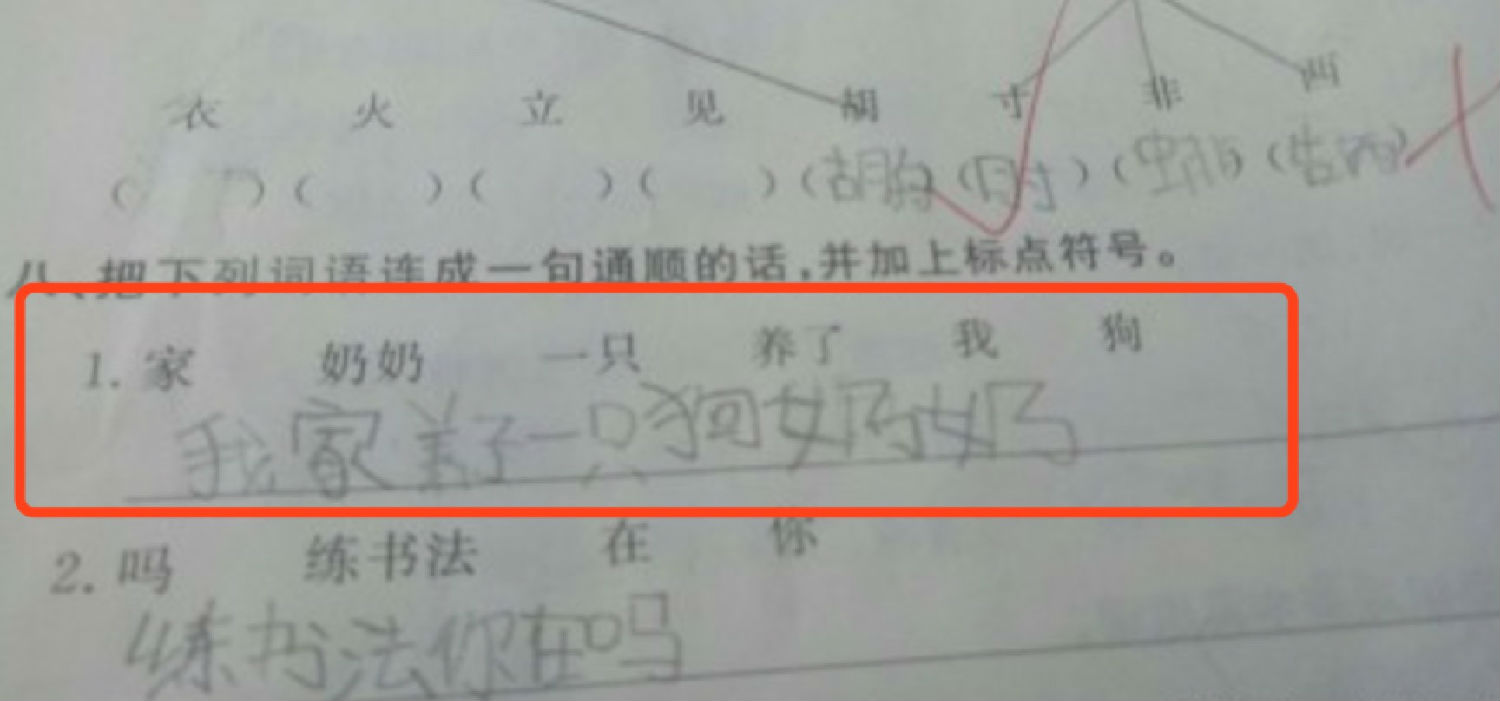 衣 火 立 见 胡 寸 非 两
( ) ( ) ( ) ( ) (胡 ) (时) ( ) ( )
八、把下列词语连成一句通顺的话,并加上标点符号。
1. 家 奶奶 一只 养了 我 狗
我家养了一只狗奶奶
2. 吗 练书法 在 你
练书法你在吗